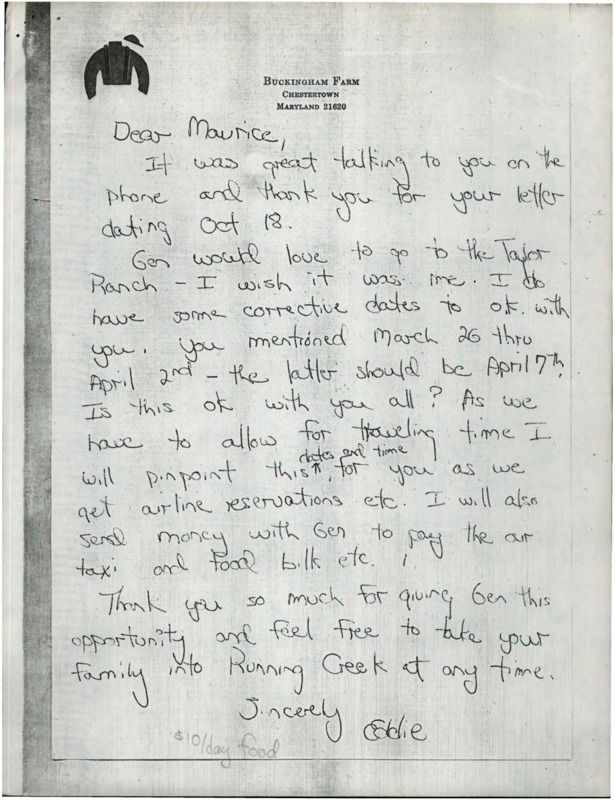 BUCKINGHAM FARM
CHESTERTOWN
MARYLAND 21620
Dear Maurice,
It was great talking to you on the
phone and thank you for your letter
dating Oct 18.
Gen would love to go to the Taylor
Ranch - I wish it was me. I do
have some corrective dates to ok. with
you. You mentioned March 26 thru
April 2nd - the latter should be April 7th.
Is this ok with you all? As we
have to allow for traveling time I
dates and time
will pinpoint this, for you as we
get airline reservations etc. I will also
send money with Gen to pay the air
taxi and food bill etc.
Thank you so much for giving Gen this
opportunity and feel free to take your
family into Running Creek at any time.
Sincerely
Eddie
$10/day food